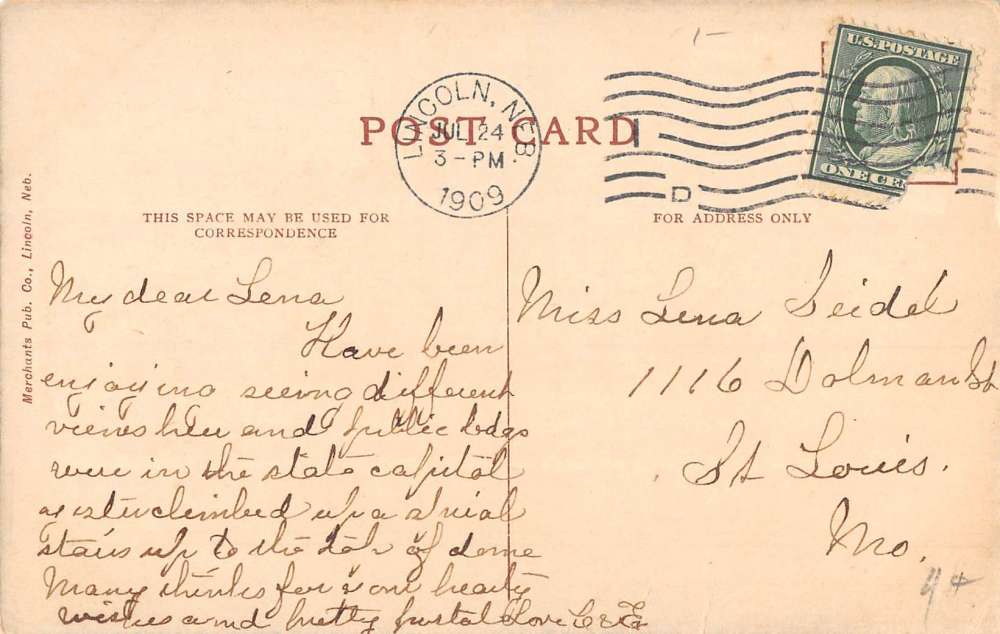 POST CARD
LINCOLN, NEB.
JUL 24
3-PM
1909
D
U.S. POSTAGE
ONE CE
THIS SPACE MAY BE USED FOR
CORRESPONDENCE
FOR ADDRESS ONLY
Merchants Pub. Co., Lincoln, Neb.
My dear Lena
Have been
enjoying seeing different
views here and public bdgs
were in the state capitol
climbed up a spiral
stairs up to the top of dome
Many thinks for your hearty
wishes and pretty postal Love
Miss Lena Seidel
1116 Dolman St
St Louis.
Mo.